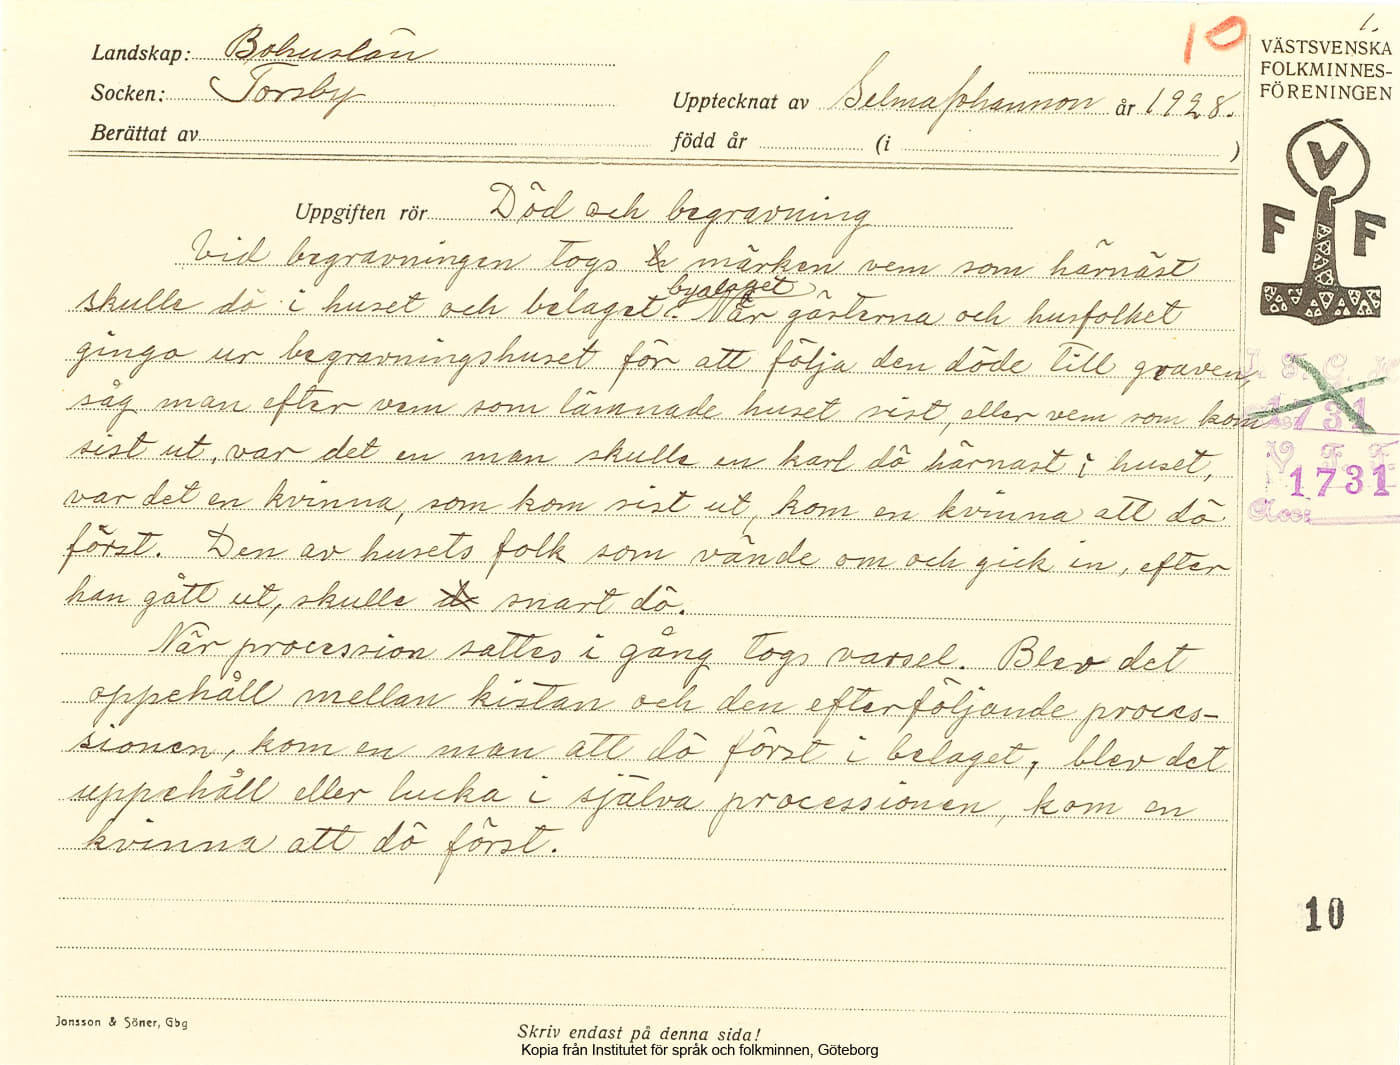 1.
10
Landskap: Bohuslän
Socken: Torsby
Upptecknat av Selma Johannson år 1928.
Berättat av
född år (i )
VÄSTSVENSKA
FOLKMINNES-
FÖRENINGEN
V
F F
Uppgiften rör Död och begravning
Vid begravningen togs märken vem som härnäst
byalaget
skulle dö i huset och belaget. När gästerna och husfolket
gingo ur begravningshuset för att följa den döde till graven,
såg man efter vem som lämnade huset sist, eller vem som kom
sist ut, var det en man skulle en karl dö härnast i huset,
var det en kvinna, som kom sist ut, kom en kvinna att dö
först. Den av husets folk som vände om och gick in, efter
han gått ut, skulle snart dö.
När procession sattes i gång togs varsel. Blev det
oppehåll mellan kistan och den efterföljande proces-
sionen, kom en man att dö först i belaget, blev det
uppehåll eller lucka i själva processionen, kom en
kvinna att dö först.
I. F. G. H.
1731
V. F. F.
1731
Acc:
10
Jonsson & Söner, Gbg
Skriv endast på denna sida!
Kopia från Institutet för språk och folkminnen, Göteborg